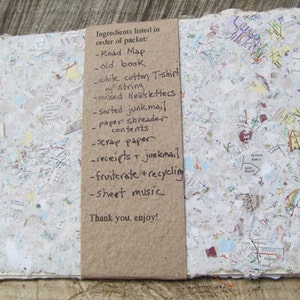 Ingredients listed in
order of packet:
- Road Map
- old book
- white cotton T-shirt
w/ string
- mixed Newsletters
- sorted junkmail
- paper shreader
contents
- scrap paper
- receipts + junkmail
- fruiterate + recycling
- sheet music
Thank you, enjoy!